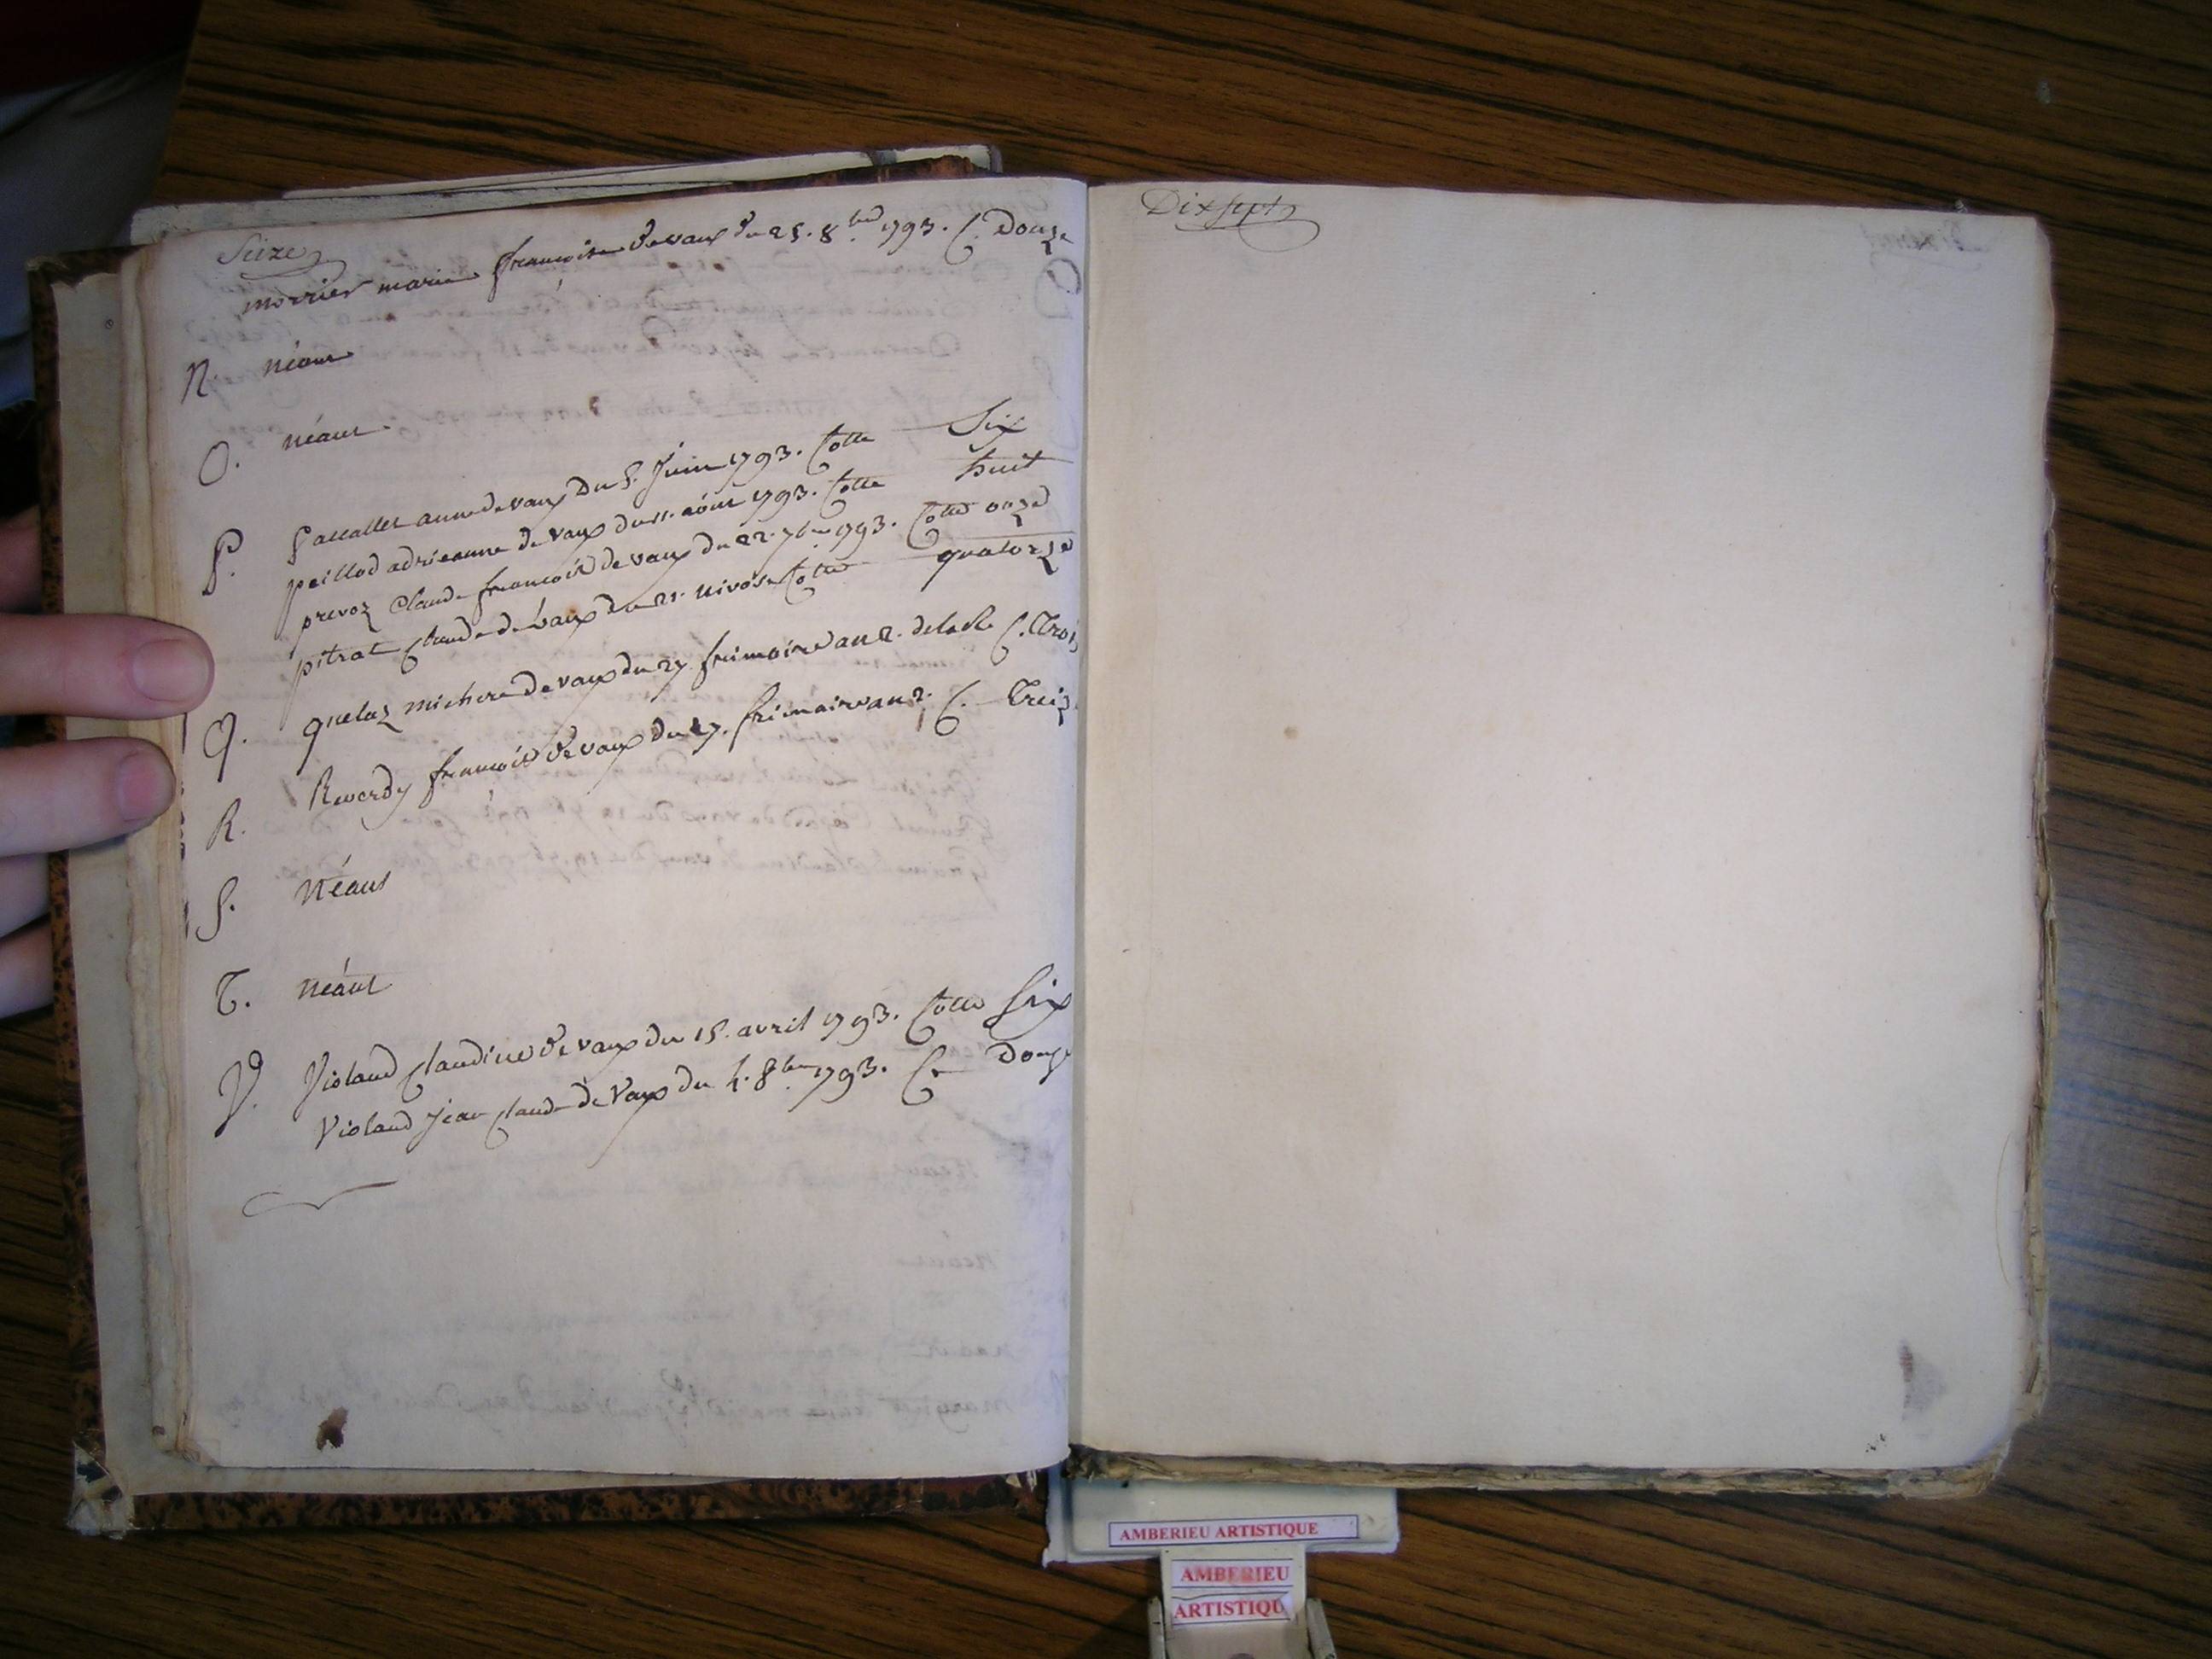 Seize
morrier marie françoise de vaux du 25. 8bre 1793. C. Douze
N. néant
O. néant
P. Pacallet anne de vaux du 5. Juin 1793. Cotte Six
peillod adrieanne de vaux du 11. aóut 1793. Cotte huit
prevoz Claude françois de vaux du 22. 7bre 1793. Cotte onze
pitrat Claude de vaux du 21. nivose Cotte quatorze
Q. quelaz michere de vaux du 27 frimaire an 2. de la R. C. Trei
R. Reverdy françois de vaux du 27. frimaire an 2. C. Treiz
S. Néant
T. néant
V. Violand Claudine de vaux du 15. avril 1793. Cotte Six
Violand Jean Claude de Vaux du 4. 8bre 1793. C. Douze
Dix sept
AMBERIEU ARTISTIQUE
AMBERIEU
ARTISTIQU